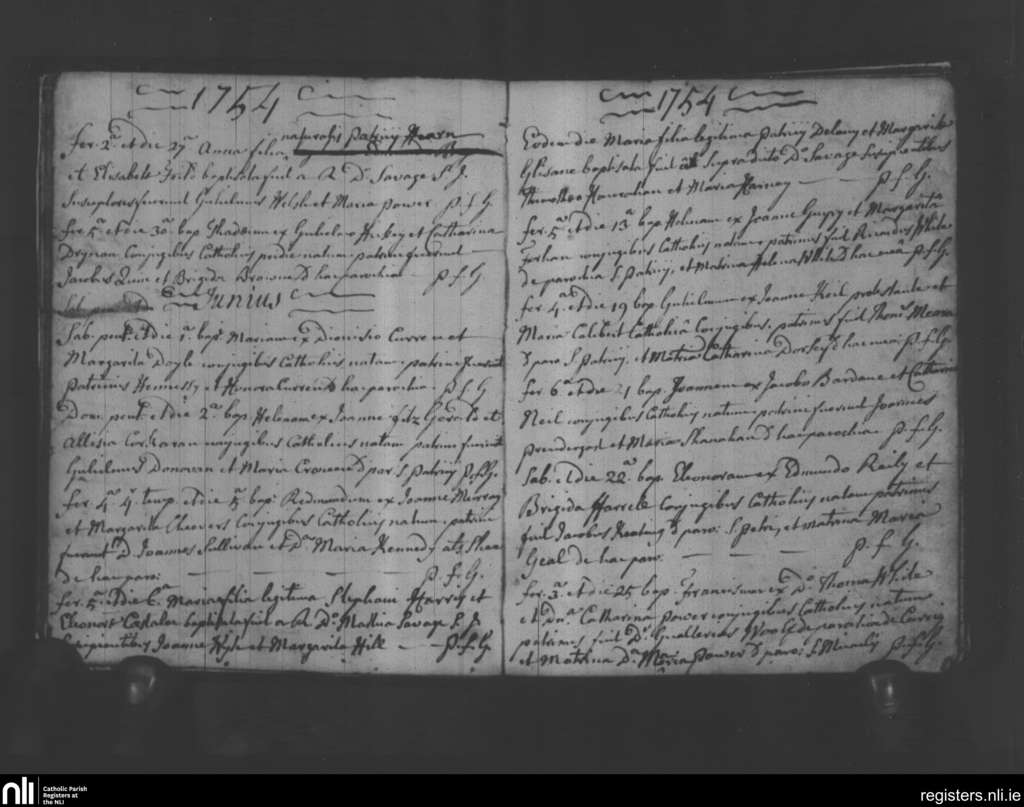 1754
fer. 2ª et die 27ª Anna filia naturalis Patricij Hearn
et Elisabeth baptisata fuit a R. D. Savage S. J.
Susceptores fuerunt Gulielmus Welsh et Maria Power p. f. G.
fer. 5ª et die 30ª bap. Thadeum ex Gulielmo et Catharina
Conjugibus Catholicis natum patrini fuerunt
Jacobus Quin et Brigida Browne hac parochia p. f. G.
Junius
Sab. et die 1ª bap. Mariam ex Dionisio Curren et
Margarita Doyle conjugibus Catholicis natam patrini fuerunt
Patricius Hennessy et Honora Curren hac parochia p. f. G.
Dom. pent. et die 2ª bap. Helenam ex Joanne fitz Gerald et
Allisia Corkaran conjugibus Catholicis natam patrini fuerunt
Gulielmus Donovan et Maria par. S. Patricij p. f. G.
fer. 4ª 4. temp. et die 5ª bap. Redmundum ex Joanne Murray
et Margarita Cheevers Conjugibus Catholicis natum patrini
fuerunt D. Joannes Sullivan et Dª Maria Kennedy als Shea
de hac paro: p. f. G.
fer. 5ª et die 6ª Maria filia legitima Stephani Harris et
Elionore baptisata fuit a R. D. Mattheo Savage S. J.
Suscipientibus Joanne et Margarita Hill p. f. G.
1754
Eodem die Maria filia legitima Patricij Delany et Margarita
Glisane baptisata fuit a Supradicto D. Savage Suscipientibus
Timotheo Hanrahan et Maria p. f. G.
fer. 5ª et die 13ª bap. Helenam ex Joanne et Margarita
conjugibus Catholicis natam patrinus fuit Ricardus White
de parochia S. Patricij, et Matrina Helena White p. f. G.
fer. 4ª et die 19 bap. Gulielmum ex Joanne Keil protestante et
Maria Catholica Conjugibus. patrinus fuit Thom. Meara
par. S. Patricij, et Matrina Catharina p. f. G.
fer. 6ª et die 21 bap. Joannem ex Jacobo Bardane et Catharina
Neil conjugibus Catholicis natum patrini fuerunt Joannes
Prendergast et Maria Shanahan hac parochia p. f. G.
Sab. et die 22ª bap. Eleonoram ex Edmundo Reily et
Brigida Farrell Conjugibus Catholicis natam patrinus
fuit Jacobus Keating paro: S. Petri, et matrina Maria
Geal de hac par. p. f. G.
fer. 3ª et die 25 bap. Franciscum ex D. Thoma White
et Dnª Catharina Power conjugibus Catholicis natum
patrinus fuit D. Gualterius Woolfe de Carrig
et Matrina Dª Maria Power paro: S. p. f. G.
nli
Catholic Parish
Registers at
the NLI
registers.nli.ie